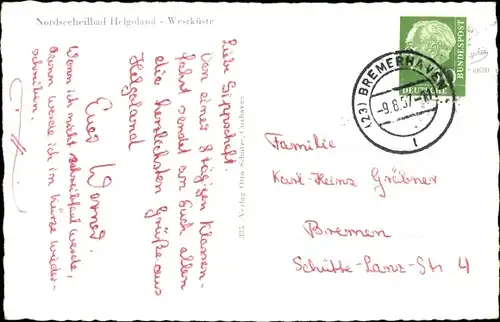 Nordseeheilbad Helgoland - Westküste
Liebe Sippschaft.
Von einer 8 tägigen Klassen-
fahrt sendet an Euch allen
die herzlichsten Grüße aus
Helgoland
Euer Werner.
Wenn ich nicht schreibfaul werde,
dann werde ich in Kürze wieder
schreiben.
355 Verlag Otto Schulze, Cuxhaven
DEUTSCHE
BUNDESPOST
(23) BREMERHAVEN
-9.8.57
1
Familie
Karl-Heinz Gräbner
Bremen
Schütte-Lanz-Str 4